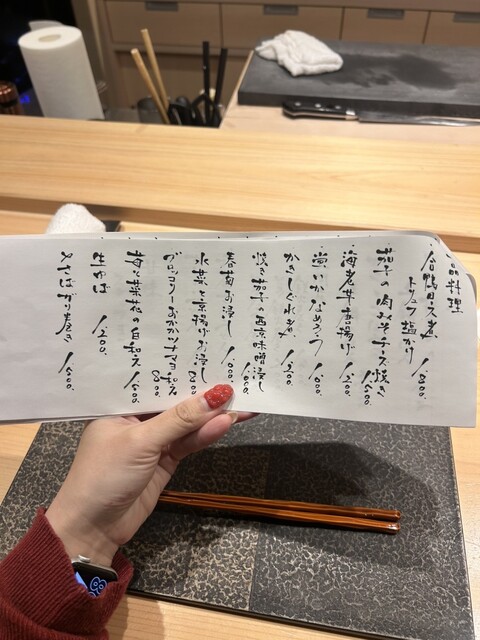 一品料理
・合鴨ロース煮
トリュフ塩かけ 1,800.
茄子の肉みそチーズ焼き 1,500.
・海老芋唐揚げ 1,200.
・蛍いかなめろう 1,000.
かきしぐれ煮 1,200.
焼き茄子の西京味噌浸し 1,000.
春菊お浸し 1,000.
水菜と京揚げお浸し 800
ブロッコリーおかかツナマヨ和え 800.
苺と菜花の白和え 1,500.
生ゆば 1,200.
とさばがり巻き 1,500.